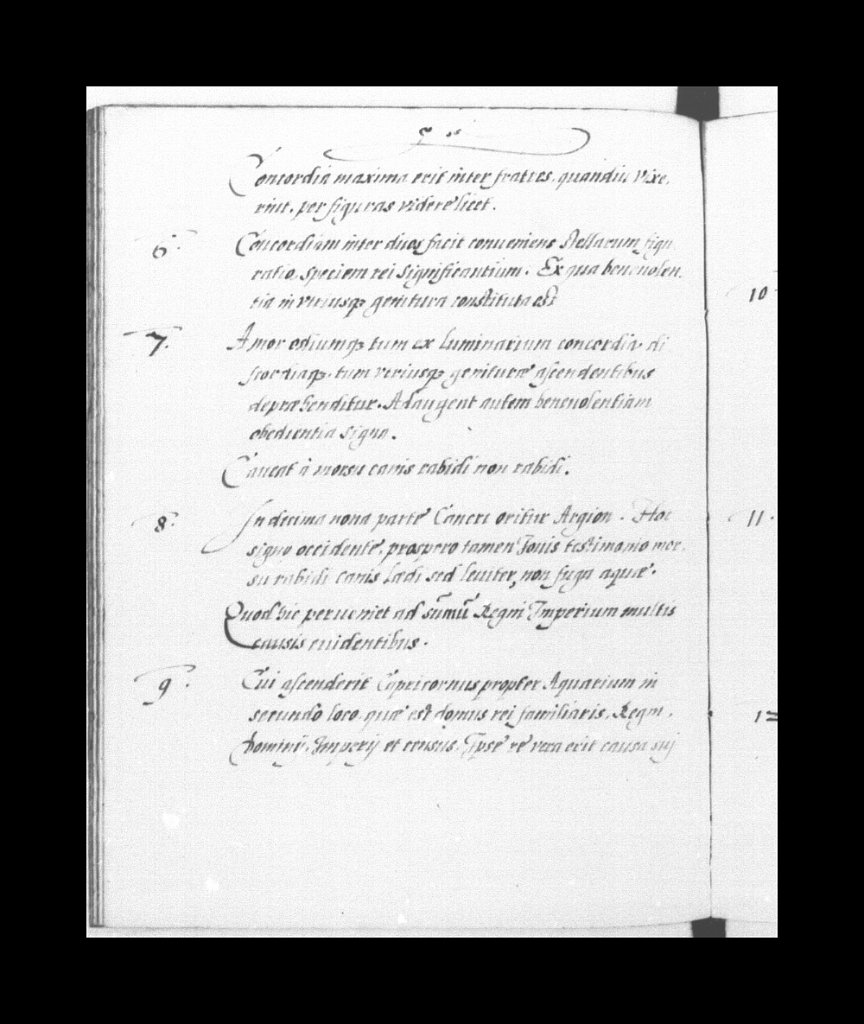 Concordia maxima erit inter fratres, quandiu vixe,
rint, per figuras videre licet.
6. Concordiam inter duos facit conueniens stellarum figu
ratio, speciem rei significantium. Ex qua beneuolen,
tia in vtriusq genitura constituta est
7. Amor odiumq tum ex luminarium concordia di
scordiaq, tum vtriusq geniturae ascendentibus
depraehenditur. Adaugent autem beneuolentiam
obedientia signa.
Caueat à morsu canis rabidi non rabidi.
8. In decima nona parte Cancri oritur Argion. Hoc
signo occidente, prospero tamen Iouis testimonio mor,
su rabidi canis laedi sed leuiter, non fuga aquae.
Quod hic perueniet ad sūmū Regni Imperium multis
causis euidentibus.
9. Cui ascenderit Capricornus propter Aquarium in
secundo loco, quae est domus rei familiaris, Regni,
Dominij, Imperij et census, Ipse re vera erit causa sui
10
11.
12